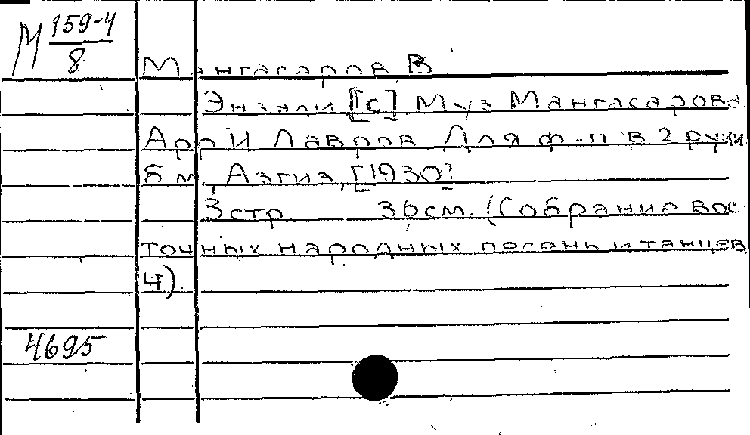 М 159-4
8
Мангасаров В
Энзали [Ic] Муз Мангасарова
Арр И Лавров Для ф-п в 2 руки
Б м, Азгиз, [1930]
3стр 36см. (Собрание вос
точных народных песень и танцев
4).
4695